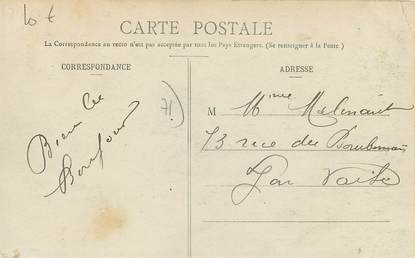 10 €
CARTE POSTALE
La Correspondance au recto n'est pas acceptée par tous les Pays Etrangers. (Se renseigner à la Poste)
CORRESPONDANCE
ADRESSE
71)
Bien le
Bonjour
M Mme
73 rue du
Lyon Vaise